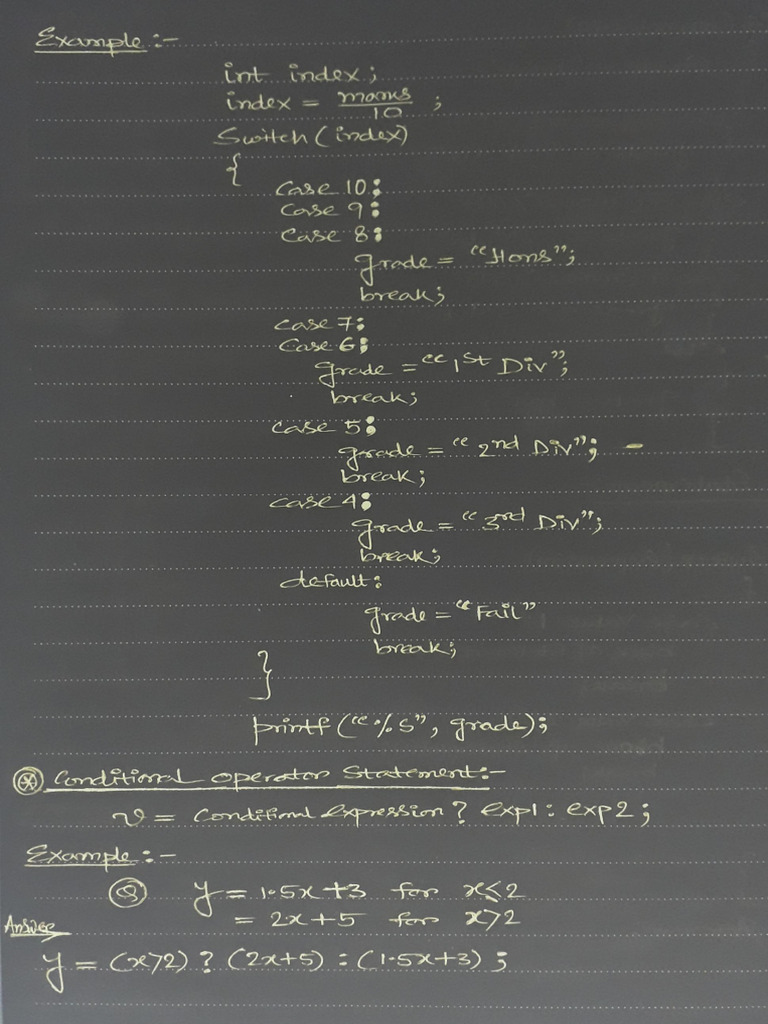 Example :-
int index ;
index = marks / 10 ;
Switch (index)
{
Case 10 :
Case 9 :
Case 8 :
grade = "Hons";
break;
case 7:
Case 6:
grade = "1st Div";
break;
case 5:
grade = "2nd Div"; -
break;
case 4:
grade = "3rd Div";
break;
default:
grade = "Fail"
break;
}
printf ("%s", grade);
* Conditional operator Statement:-
v = Conditional expression ? exp1 : exp2 ;
Example :-
Q y = 1.5x + 3 for x≤2
= 2x + 5 for x>2
Answer
y = (x>2) ? (2x+5) : (1.5x+3) ;